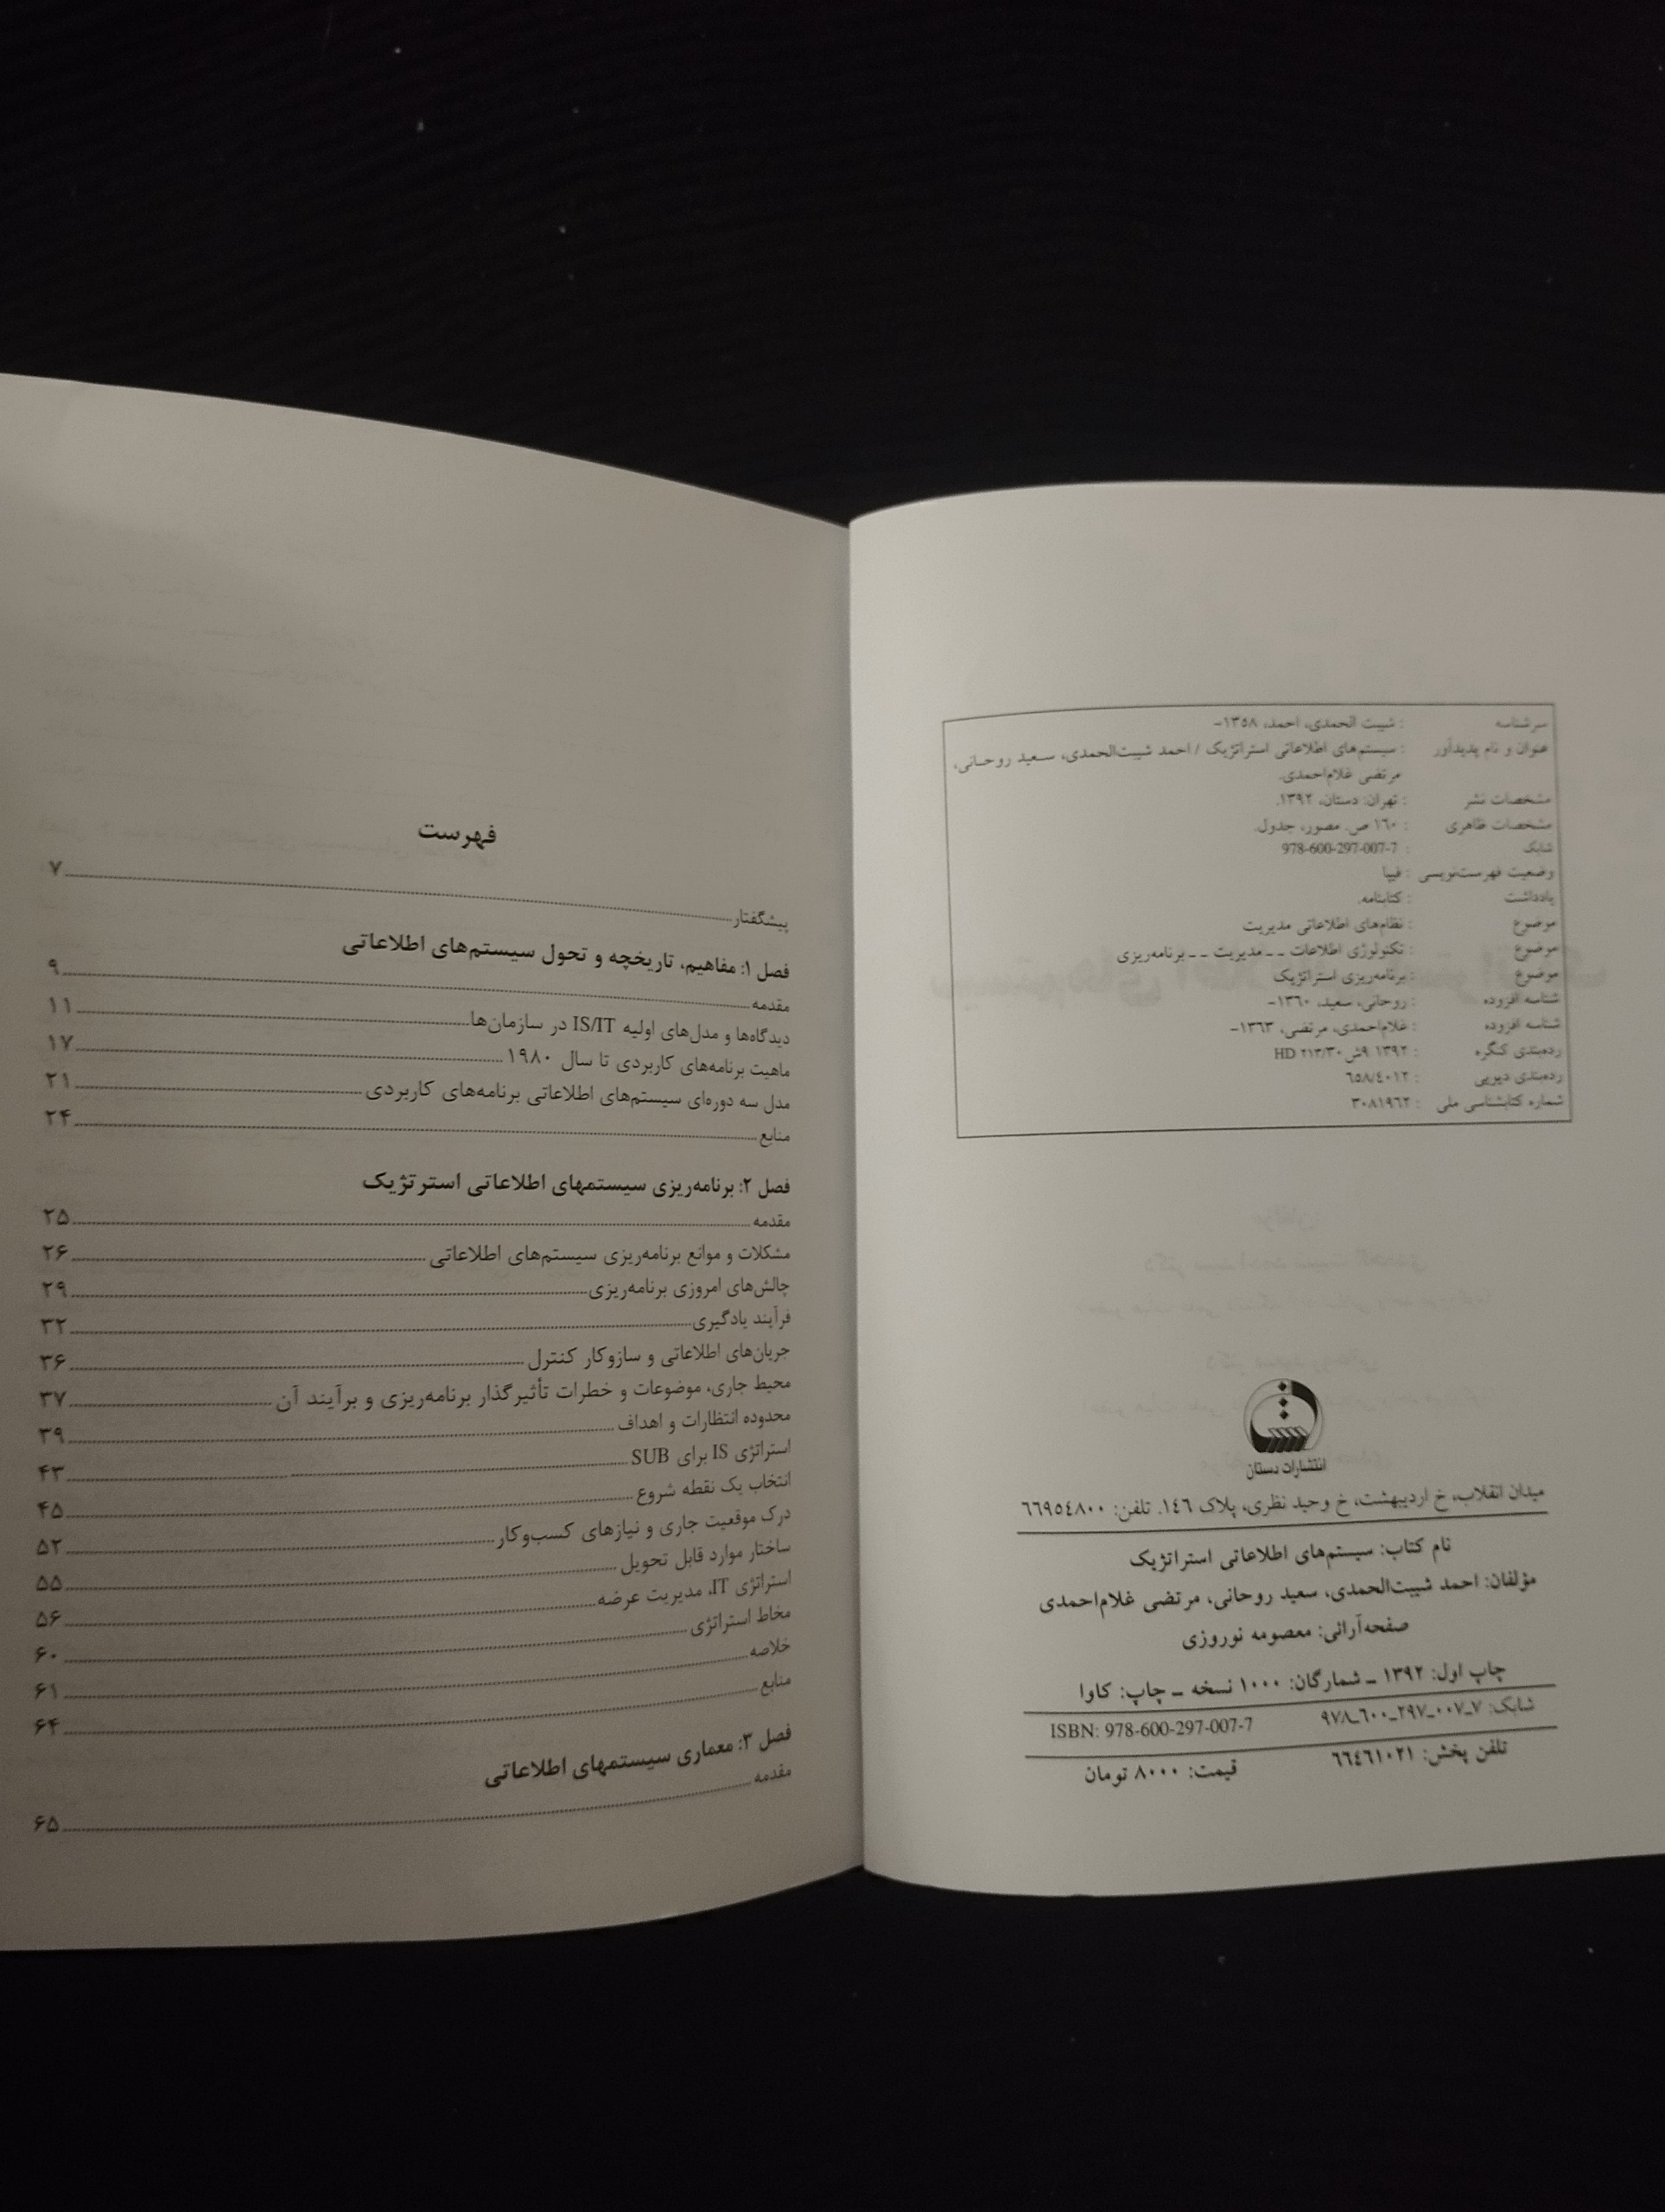 سرشناسه : شیبت الحمدی، احمد، ۱۳۵۸-
عنوان و نام پدیدآور : سیستم‌های اطلاعاتی استراتژیک / احمد شیبت‌الحمدی، سـعید روحـانی،
مرتضی غلام‌احمدی.
مشخصات نشر : تهران: دستان، ۱۳۹۲.
مشخصات ظاهری : ۱٦۰ ص. مصور، جدول.
شابک : 978-600-297-007-7
وضعیت فهرست‌نویسی : فیپا
یادداشت : کتابنامه.
موضوع : نظام‌های اطلاعاتی مدیریت
موضوع : تکنولوژی اطلاعات ــ مدیریت ــ برنامه‌ریزی
موضوع : برنامه‌ریزی استراتژیک
شناسه افزوده : روحانی، سعید، ۱۳٦۰-
شناسه افزوده : غلام‌احمدی، مرتضی، ۱۳٦۳-
رده‌بندی کنگره : ۱۳۹۲ ۹ش HD ۲۱۳/۳۰
رده‌بندی دیویی : ٦٥۸/٤۰۱۲
شماره کتابشناسی ملی : ۳۰۸۱۹٦۲
انتشارات دستان
میدان انقلاب، خ اردیبهشت، خ وحید نظری، پلاک ۱٤٦. تلفن: ٦٦۹٥٤۸۰۰
نام کتاب: سیستم‌های اطلاعاتی استراتژیک
مؤلفان: احمد شیبت‌الحمدی، سعید روحانی، مرتضی غلام‌احمدی
صفحه‌آرائی: معصومه نوروزی
چاپ اول: ۱۳۹۲ ــ شمارگان: ۱۰۰۰ نسخه ــ چاپ: کاوا
شابک: ۷ـ۰۰۷ـ۲۹۷ـ٦۰۰ـ۹۷۸ ISBN: 978-600-297-007-7
تلفن پخش: ٦٦٤٦۱۰۲۱ قیمت: ۸۰۰۰ تومان
فهرست
پیشگفتار ۷
فصل ۱: مفاهیم، تاریخچه و تحول سیستم‌های اطلاعاتی
مقدمه ۹
دیدگاه‌ها و مدل‌های اولیه IS/IT در سازمان‌ها ۱۱
ماهیت برنامه‌های کاربردی تا سال ۱۹۸۰ ۱۷
مدل سه دوره‌ای سیستم‌های اطلاعاتی برنامه‌های کاربردی ۲۱
منابع ۲۴
فصل ۲: برنامه‌ریزی سیستمهای اطلاعاتی استرتژیک
مقدمه ۲۵
مشکلات و موانع برنامه‌ریزی سیستم‌های اطلاعاتی ۲۶
چالش‌های امروزی برنامه‌ریزی ۲۹
فرآیند یادگیری ۳۲
جریان‌های اطلاعاتی و سازوکار کنترل ۳۶
محیط جاری، موضوعات و خطرات تأثیرگذار برنامه‌ریزی و برآیند آن ۳۷
محدوده انتظارات و اهداف ۳۹
استراتژی IS برای SUB ۴۳
انتخاب یک نقطه شروع ۴۵
درک موقعیت جاری و نیازهای کسب‌وکار ۵۲
ساختار موارد قابل تحویل ۵۵
استراتژی IT، مدیریت عرضه ۵۶
مخاط استراتژی ۶۰
خلاصه ۶۱
منابع ۶۴
فصل ۳: معماری سیستمهای اطلاعاتی
مقدمه ۶۵